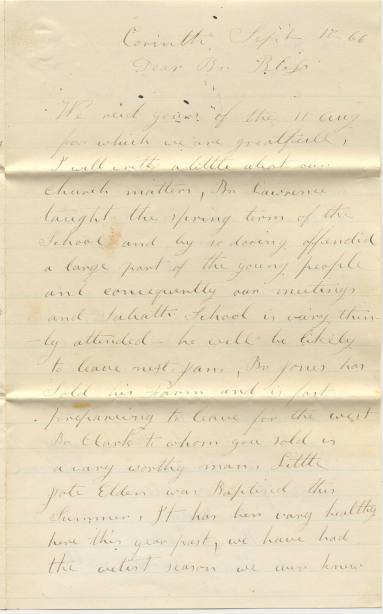 Corinth Sept 12 66
Dear Br Bliss
We recd yours of the 11 Aug
for which we are greatfull,
I will write a little about our
Church matters, Br Lawrence
taught the spring term of the
School and by so doring offendid
a large part of the young people
and concequently our meetings
and Sabath School is vary thin-
ly attended - he will be likely
to leave next, Br Jones has
Sold his Farm and is fast
prepareing to leave for the west
Br Clark to whom you sold is
a vary worthy man, Little
Elden was Baptised this
Summer, It has ben vary healthy
here this year past, we have had
the wetist season we ever knew